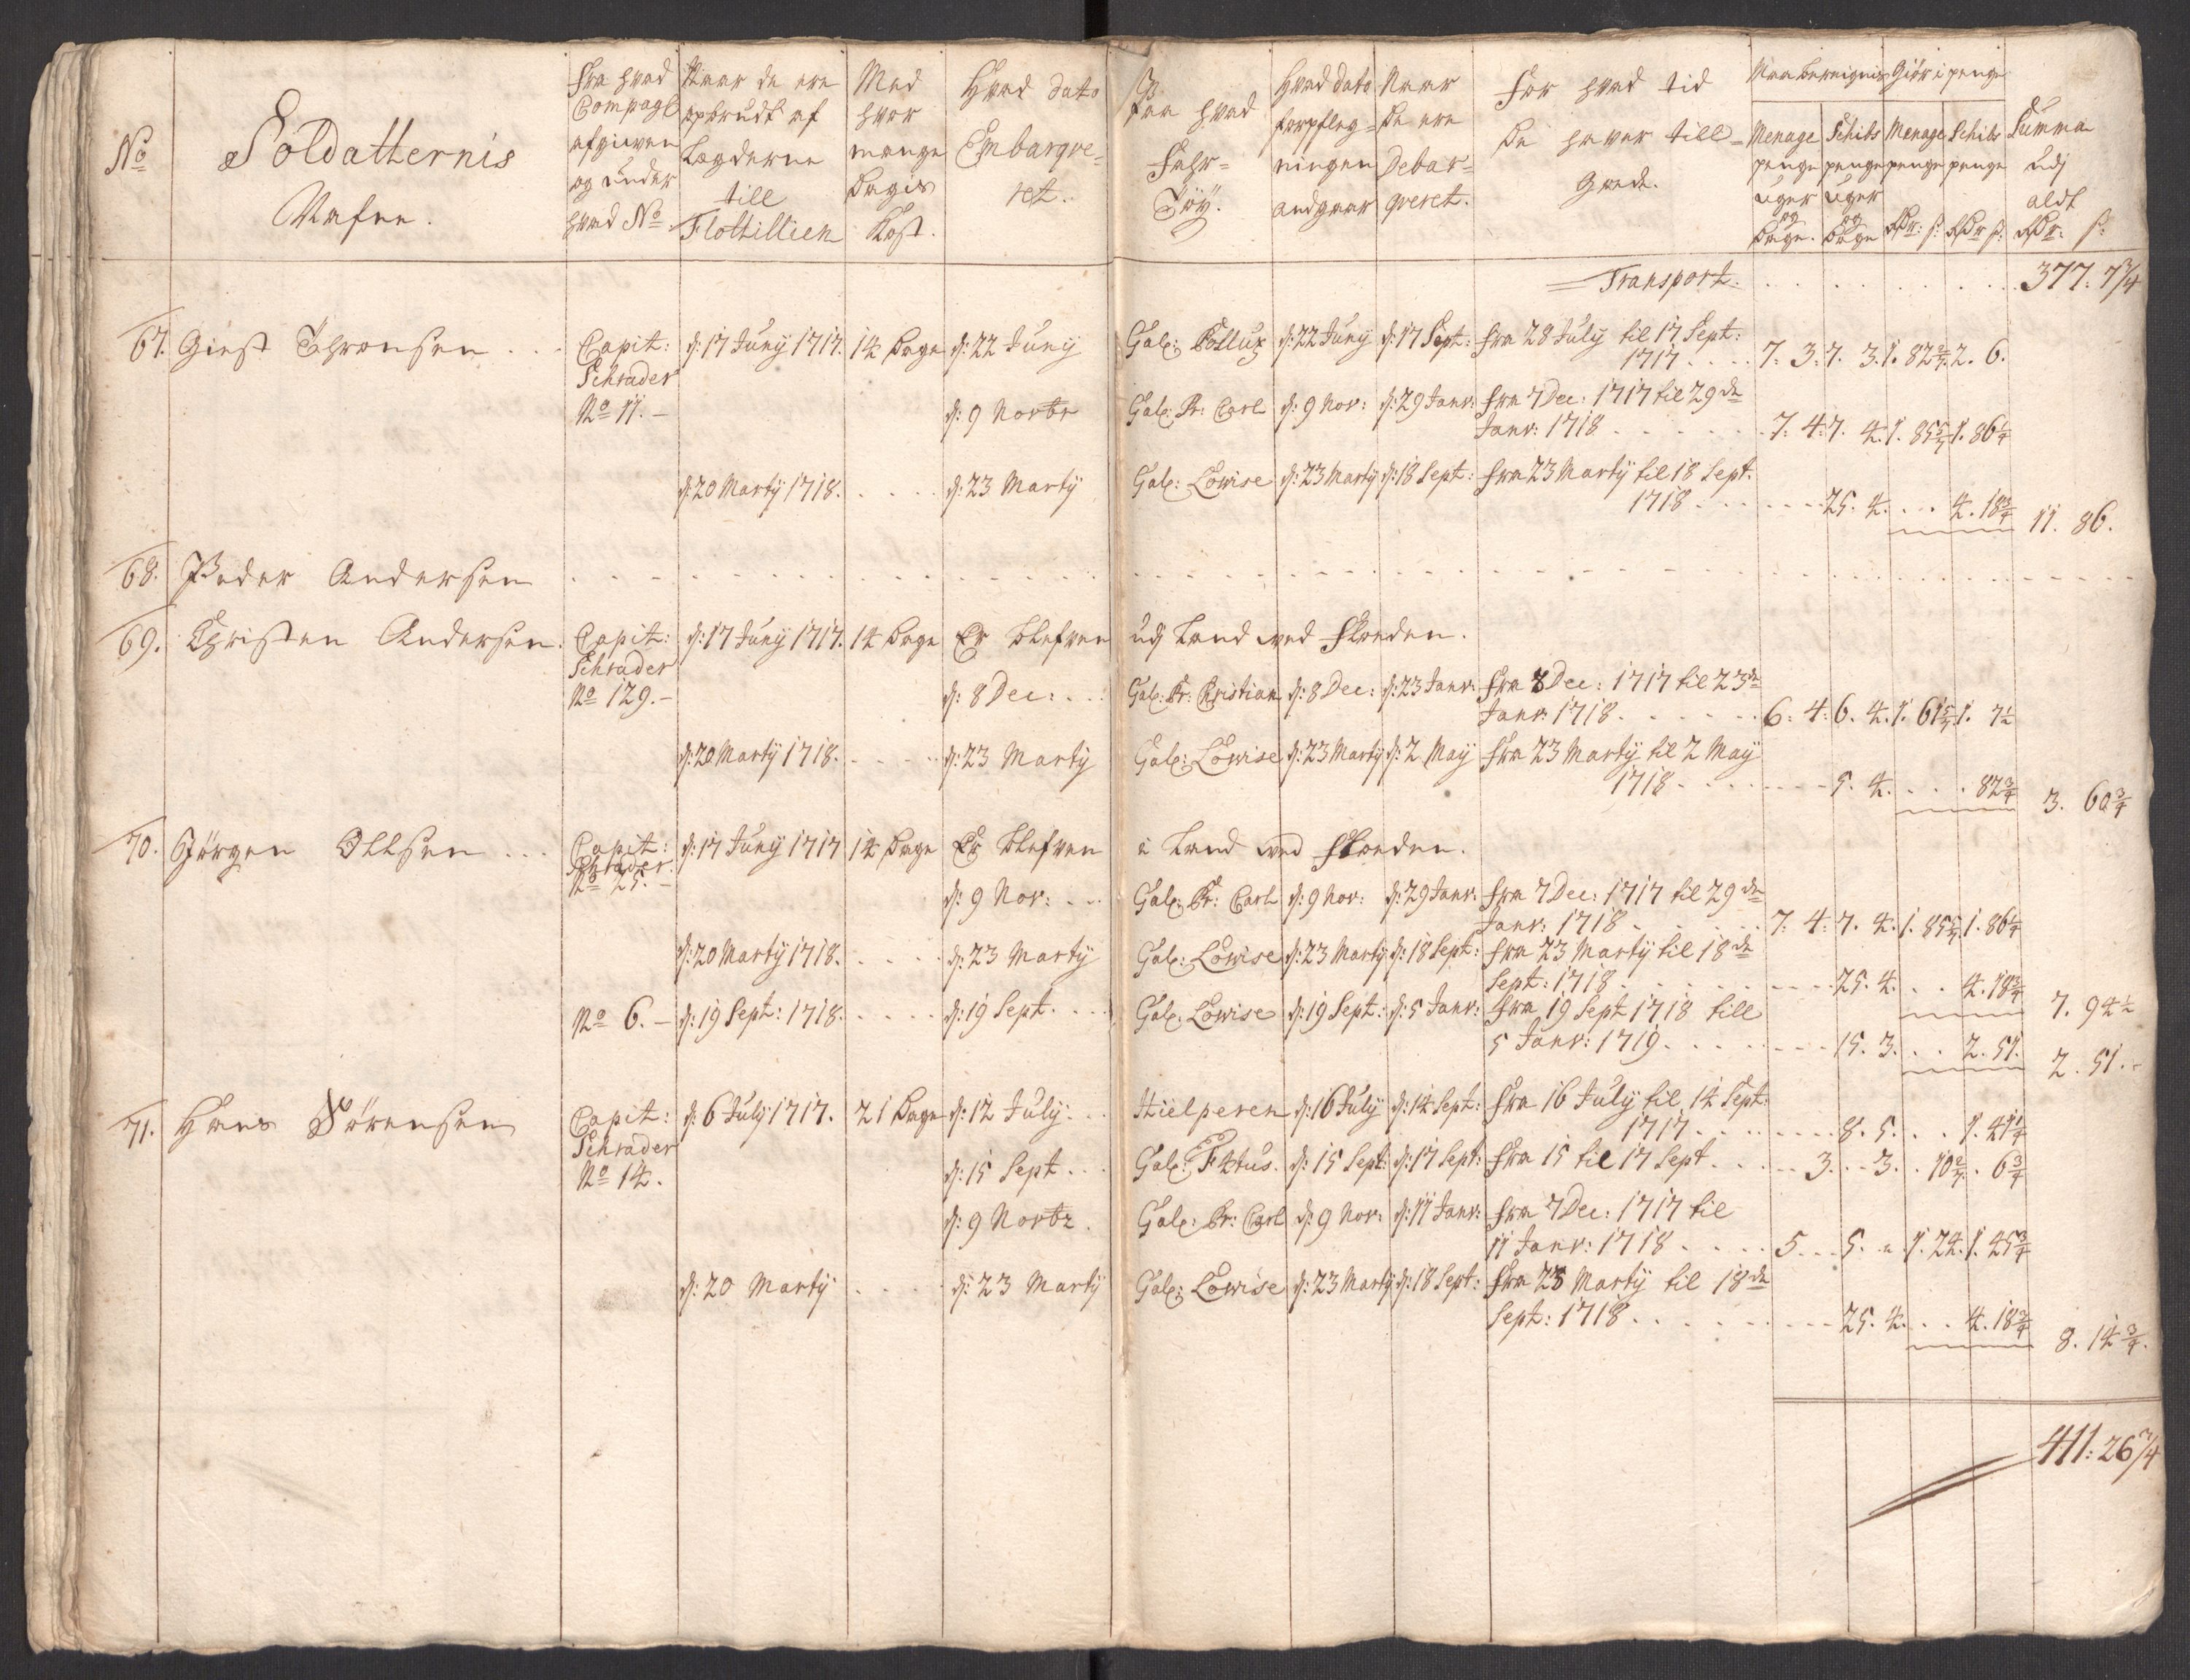 No
Soldatternis
Nafne.
Fra hvad
Compagl
afgiven
og under
hvad No
Naar de ere
opbrudt af
Lægderne
till
Flottillien
Med
hvor
mange
Dagis
Kost.
Hvad dato
Embarqve=
ret.
Paa hvad
Fahr=
Töÿ.
Hvad dato
forpfleg=
ningen
andgaar
Naar
de ere
Debar=
qveret.
For hvad tid
De haver till=
Gode.
Maa bereignis
Menage
penge
uger
og
Dage.
Schibs
penge
uger
og
Dage
Giör i penge
Menage
penge
Rdr: s:
Schibs
penge
Rdr s:
Summa
udj
aldt
Rdr: s:
Transport. . . . . . . . . . 377: 7 3/4
67. Giest Thronsen . . Capit: d: 17 Junÿ 1717. 14 Dage d: 22 Junÿ Gale: Pollux d: 22 Junÿ d: 17 Sept: fra 28 Julÿ til 17 Sept:
Schrader 1717 . . . . 7: 3: 7. 3. 1. 82 2/7. 2. 6.
No 11. – d: 9 Novbr Gale: Pr: Carl d: 9 Nov: d: 29 Janv: fra 7 Dec: 1717 til 29de
Janv: 1718 . . . . . . 7: 4: 7. 4. 1. 85 5/7 1. 86 1/4
d: 20 Martÿ 1718. . . . . d: 23 Martÿ Gale: Lowise d: 23 Martÿ d: 18 Sept: fra 23 Martÿ til 18 Sept.
1718 . . . . . . 25. 4. . . 4. 18 3/4 11. 86.
68. Peder Andersen . . . . . . . . . . . .
69. Christen Andersen. Capit: d: 17 Junÿ 1717. 14 Dage Er blefven udj Land ved Floeden.
Schrader
No 129. – d: 8 Dec: . . Gale: Pr: Christian d: 8 Dec: d: 23 Janv: fra 8 Dec: 1717 til 23de
Janv: 1718. . . . . . 6: 4: 6. 4. 1. 61 5/7 1. 7 1/2
d: 20 Martÿ 1718. . . . . d: 23 Martÿ Gale: Lowise d: 23 Martÿ d: 2 Maÿ fra 23 Martÿ til 2 Maÿ
1718 . . . . . . 5. 4. . . . 82 3/4 3. 60 3/4
70. Jörgen Ollsen . . . Capit: d: 17 Junÿ 1717 14 Dage Er blefven i Land ved Floeden.
Schrader.
No 25. – d: 9 Nov: . . Gale: Pr: Carl d: 9 Nov: d: 29 Janv: fra 7 Dec: 1717 til 29de
Janv: 1718 . . . . . 7: 4: 7. 4. 1. 85 5/7 1. 86 1/4
d: 20 Martÿ 1718. . . . . d: 23 Martÿ Gale: Lowise d: 23 Martÿ d: 18 Sept: fra 23 Martÿ til 18de
Sept: 1718 . . . . . . 25. 4. . . 4. 18 3/4 7. 94 1/2
No 6. – d: 19 Sept: 1718. . . . . d: 19 Sept. . . . Gale: Lowise d: 19 Sept: d: 5 Janv: fra 19 Sept 1718 till
5 Janv: 1719. . . . . . 15. 3. . . 2. 51. 2. 51. –
71. Hans Sörensen Capit: d: 6 Julÿ 1717. 21 Dage d: 12 Julÿ. . . Hielperen d: 16 Julÿ d: 14 Sept: fra 16 Julÿ til 14 Sept:
Schrader 1717 . . . . . . 8. 5. . . 1. 41 1/4
No 14. d: 15 Sept . . . Gale: d: 15 Sept: d: 17 Sept: fra 15 til 17 Sept . . . . . 3. . . 3. . 10 2/7. . 6 3/4
d: 9 Novbr. Gale: Pr: Carl d: 9 Nov: d: 11 Janv: fra 7 Dec: 1717 til
11 Janv: 1718 . . . . 5. . . 5. . 1. 24. 1. 45 3/4
d: 20 Martÿ . . . . d: 23 Martÿ Gale: Lowise d: 23 Martÿ d: 18 Sept: fra 23 Martÿ til 18de
Sept: 1718 . . . . . . 25. 4. . . 4. 18 3/4 8. 14 3/4.
411: 26 3/4